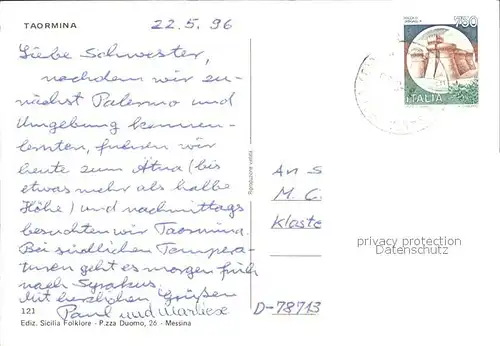 TAORMINA
22.5.96
750
ITALIA
Liebe Schwester,
nachdem wir zu-
nächst Palermo und
Umgebung kennen-
lernten, fuhren wir
heute zum Ätna (bis
etwas mehr als halbe
Höhe) und nachmittags
besuchten wir Taormina.
Bei südlichen Tempera-
turen geht es morgen früh
nach Syrakus.
Mit herzlichen Grüßen
Paul und Marliese
An S
M. C.
Kloste
D-78713
privacy protection
Datenschutz
Riproduzione vietata
121
Ediz. Sicilia Folklore - P.zza Duomo, 26 - Messina